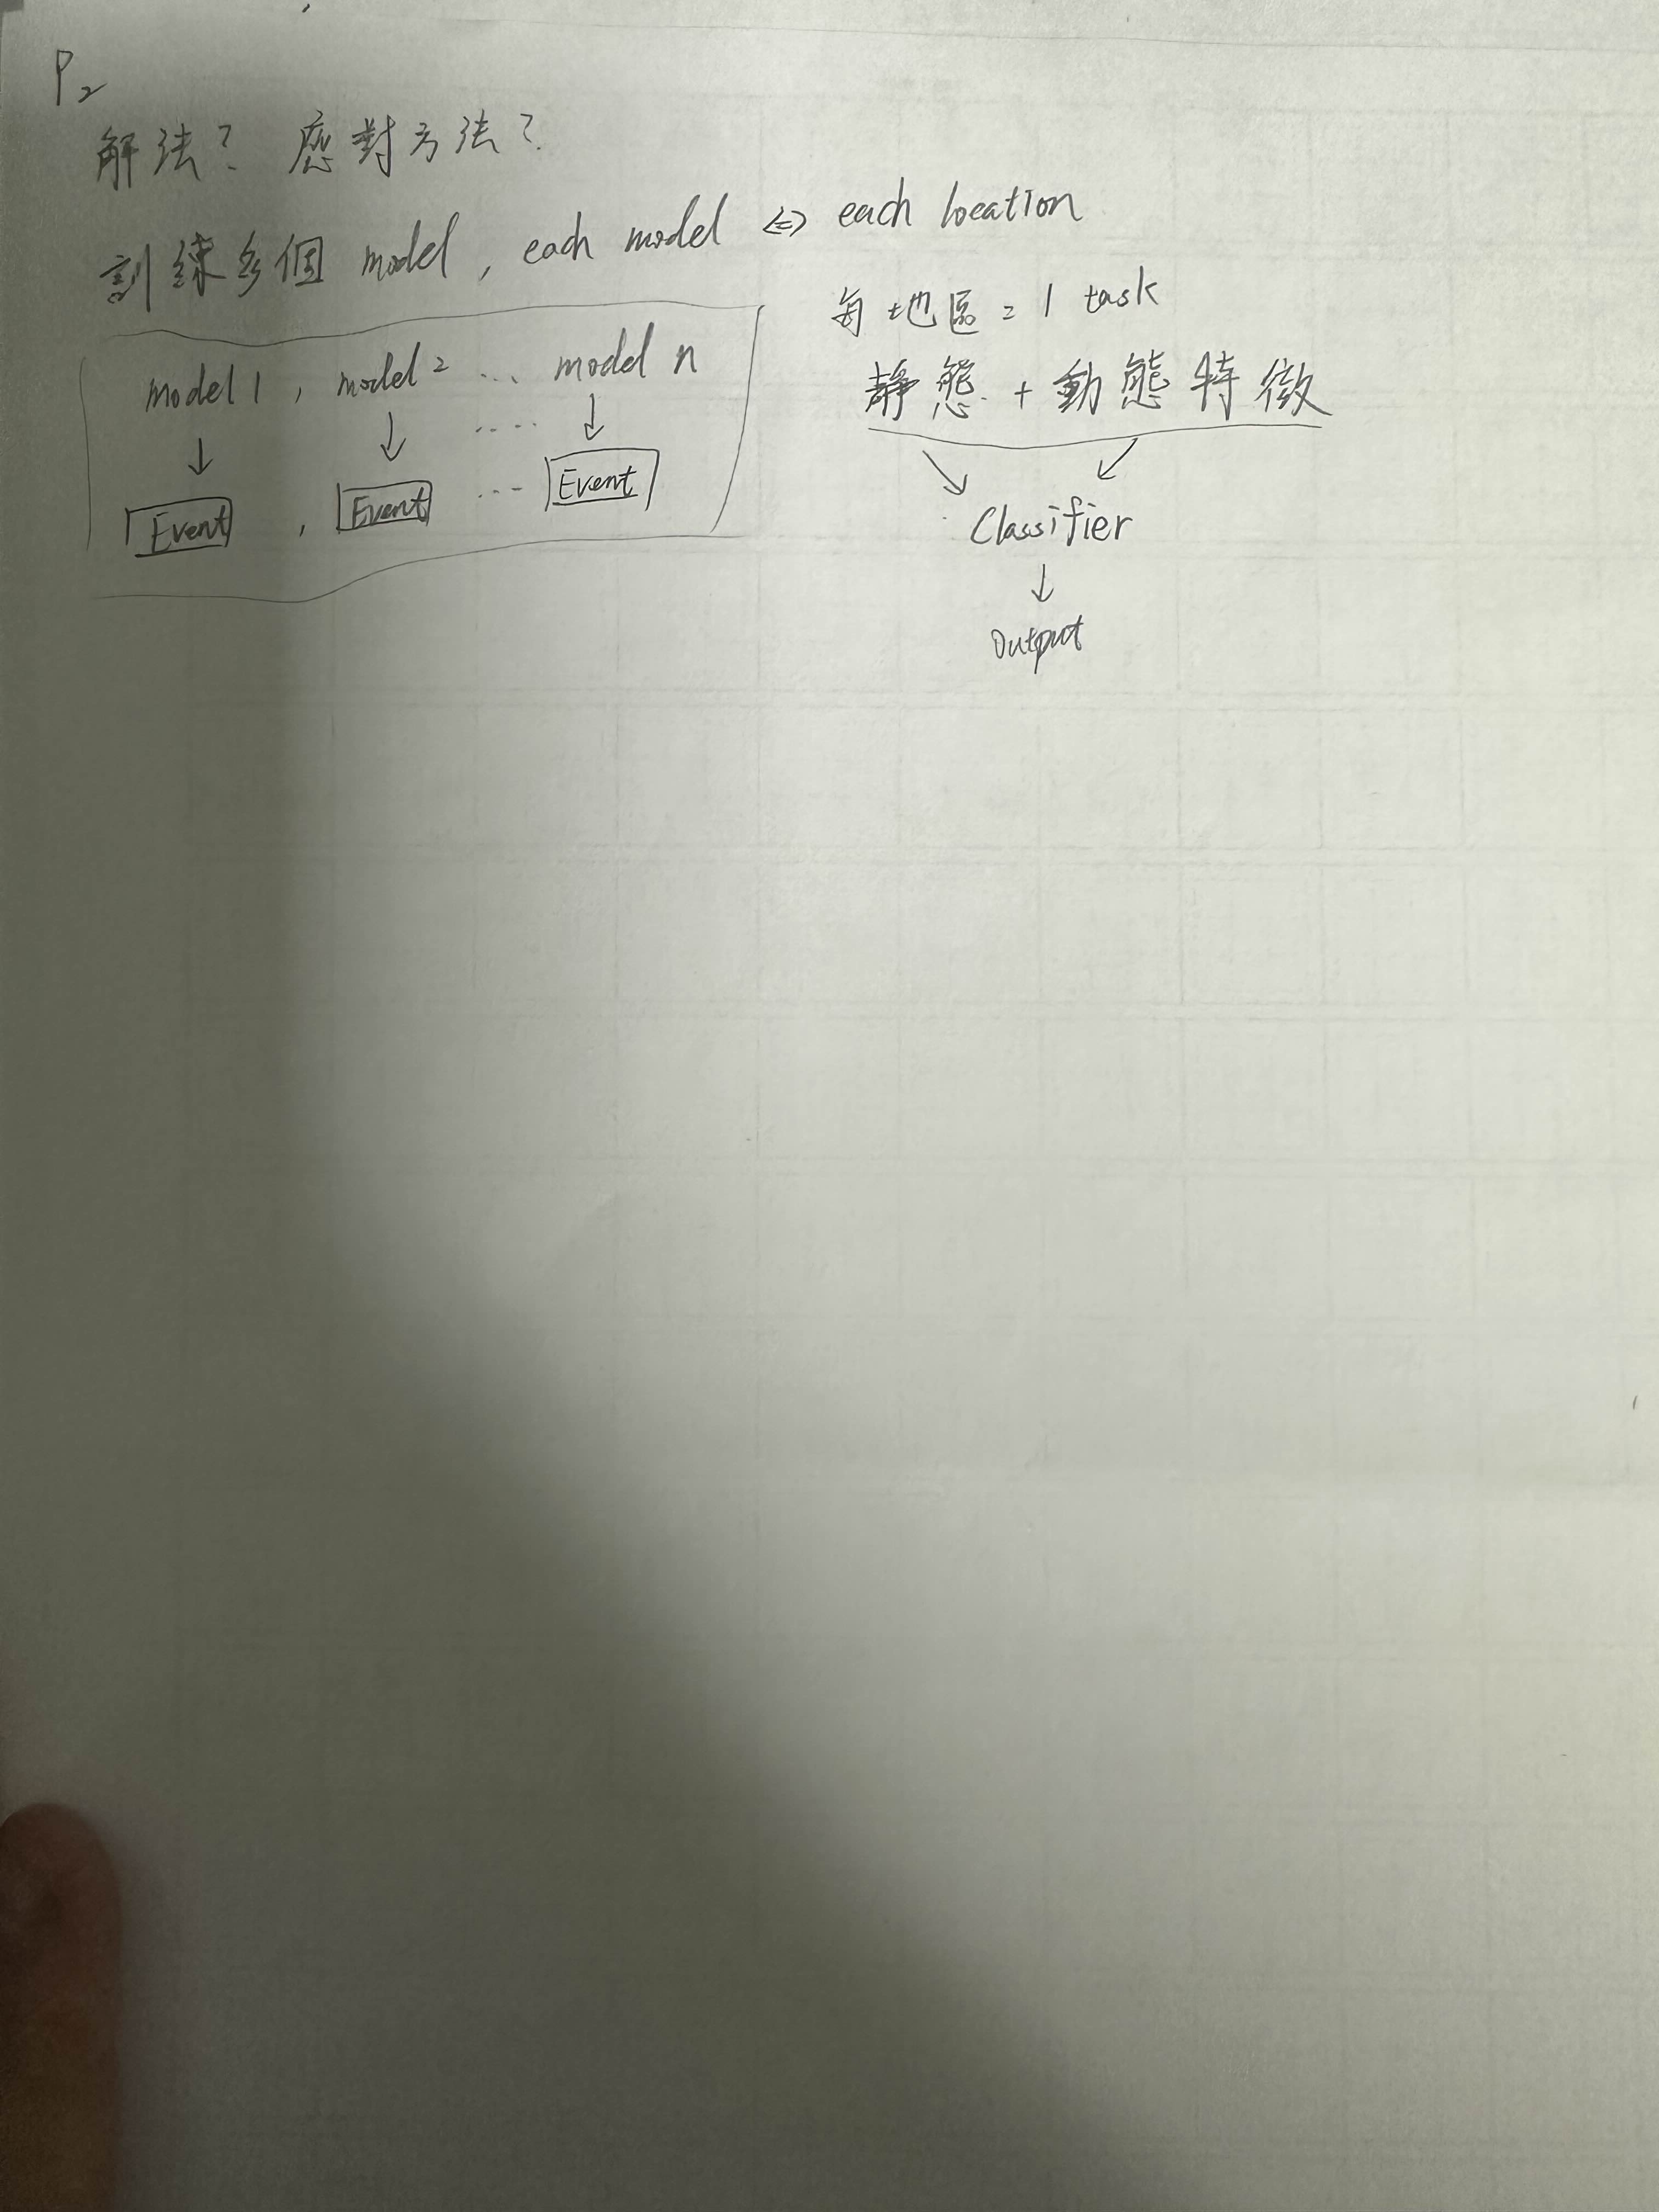 P2
解法? 應對方法?
訓練多個 model, each model <=> each location
model 1, model 2 ... model n
↓ ↓ .... ↓
Event , Event ... Event
每地區 = 1 task
靜態 + 動態特徵
↘ ↙
Classifier
↓
Output